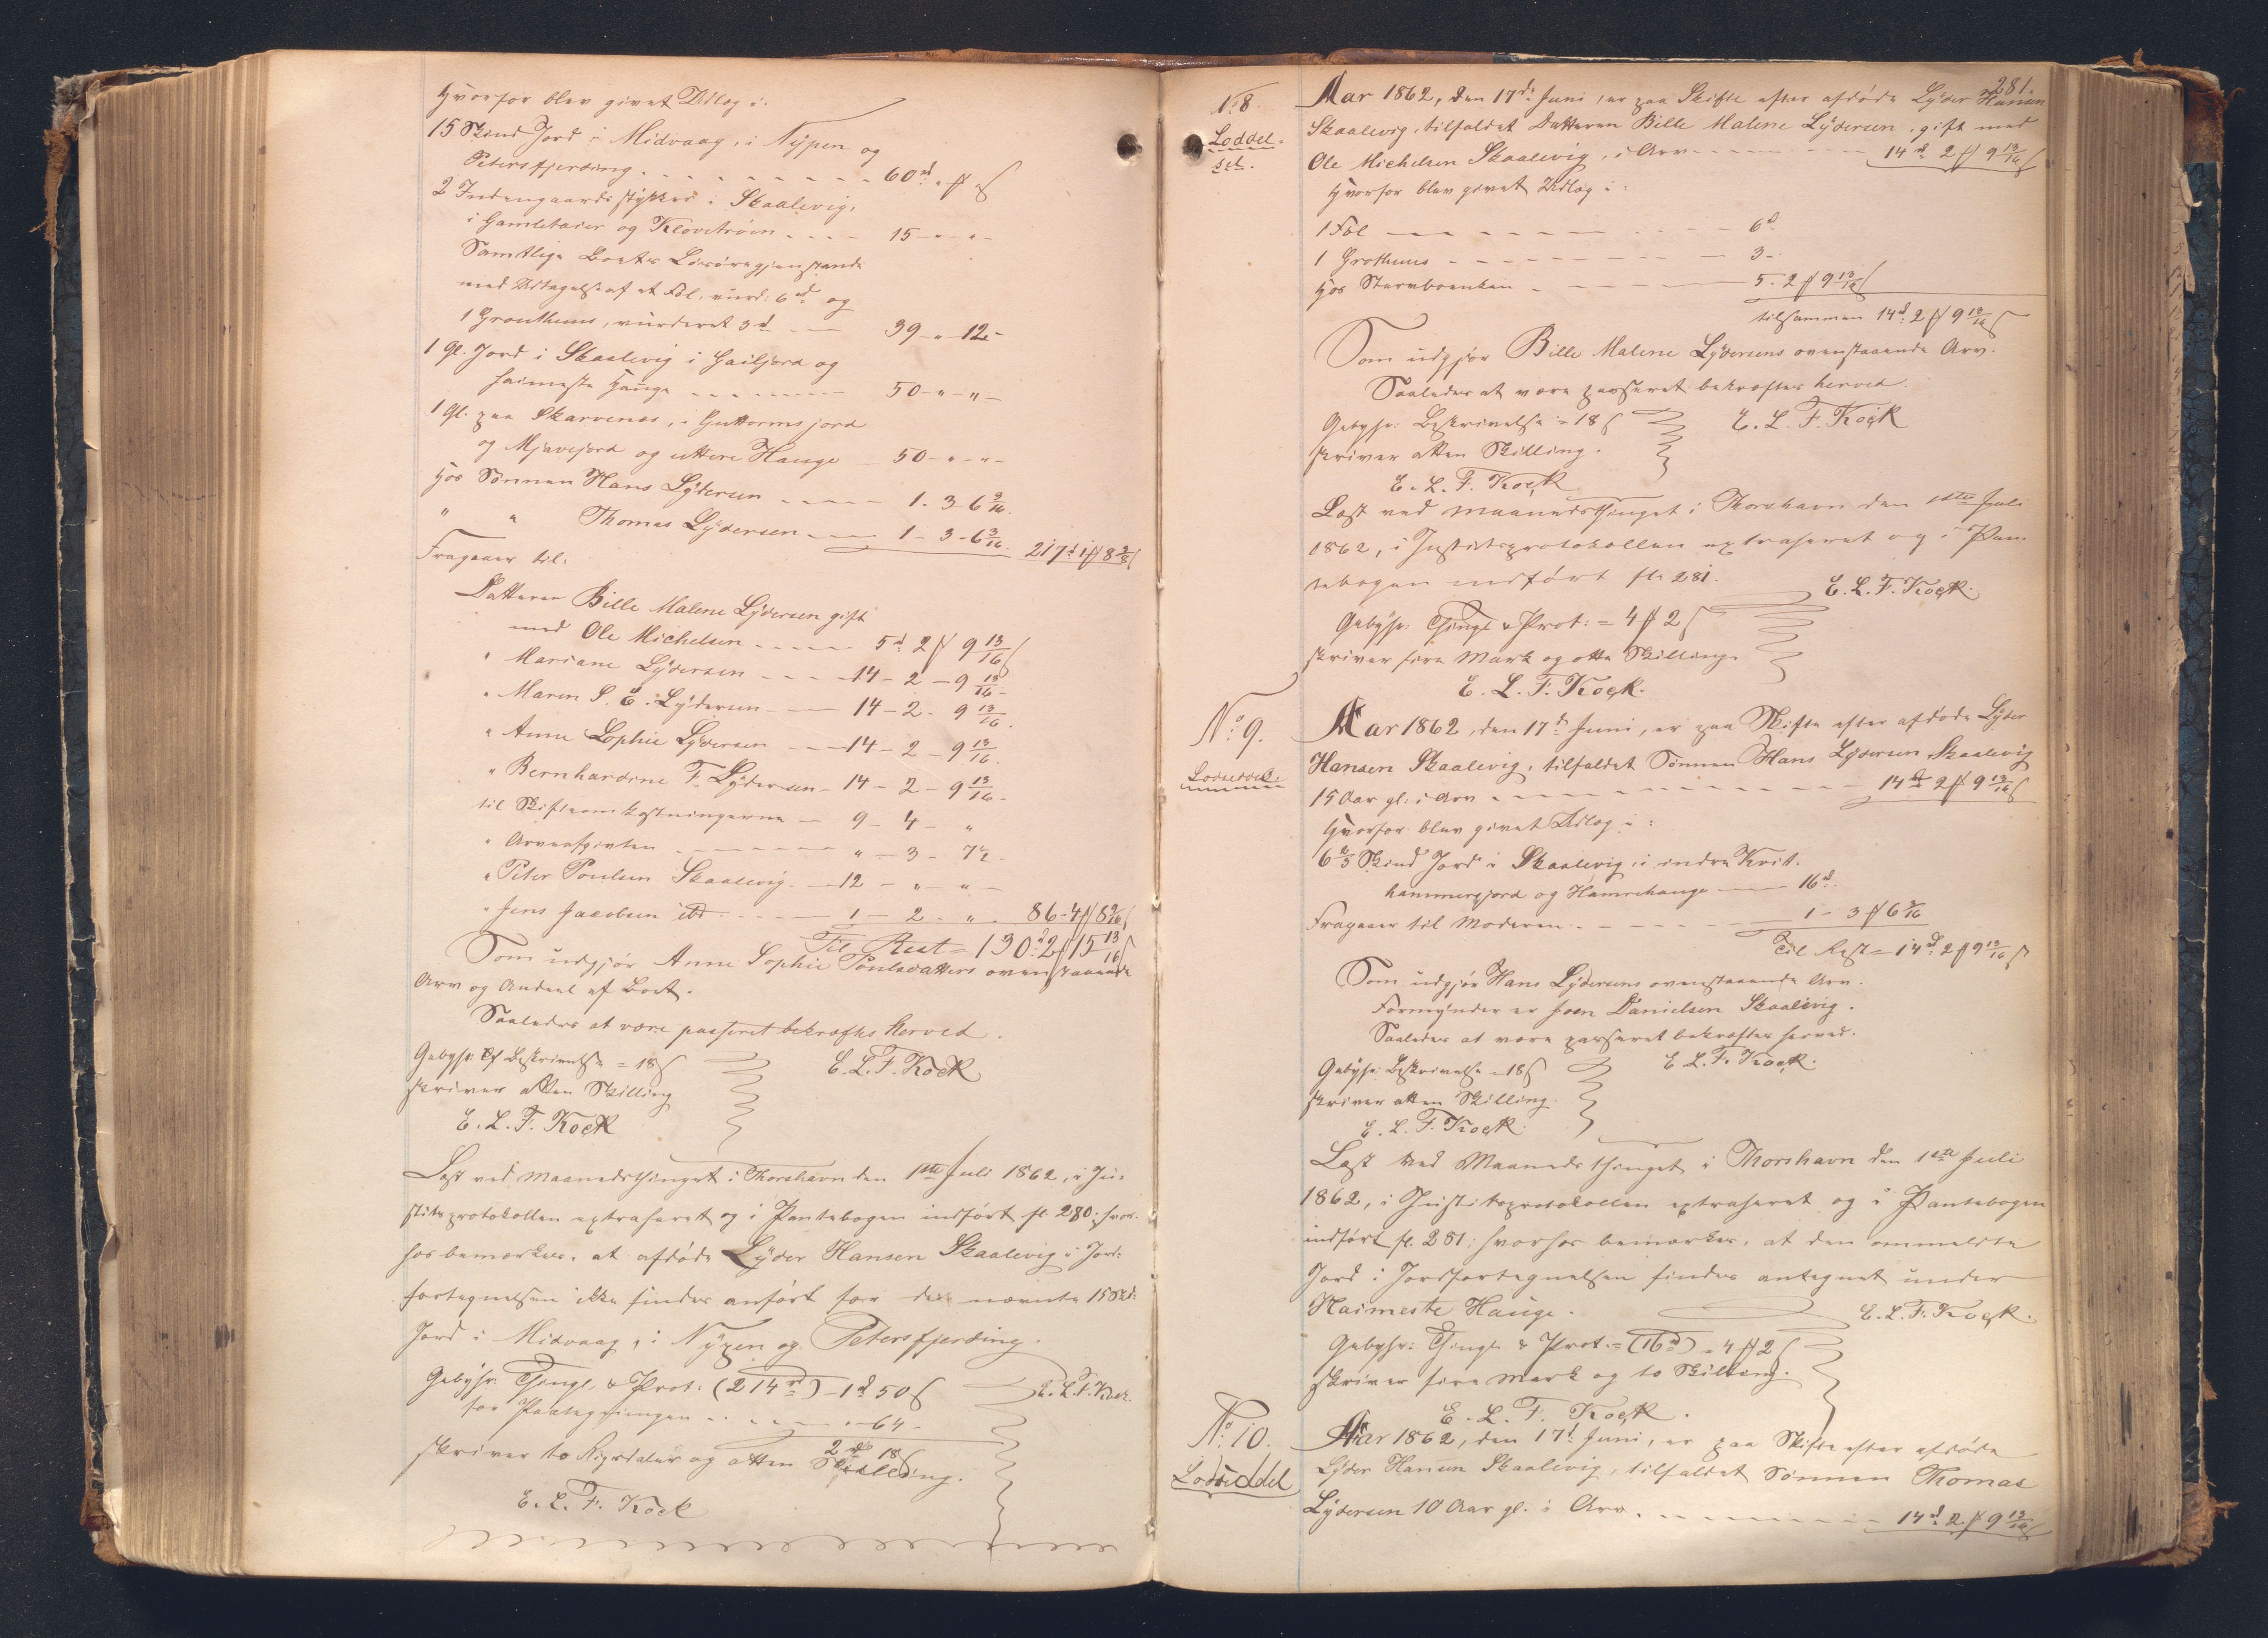 Hvorfor blev givet Udlæg i:
15 Skind Jord i Midvaag, i Nypen og
Petersfjerding . . . . . . . . . 60 rd " ß
2 Indengaards stykker i Skaalevig,
i Gamlebaier og Klovetröen . . . . 15 - " - " -
Samtlige Boets Lösöregjenstande
med Undtagelse af et Föl, vurd: 6 rd og
1 Grouthuus, vurderet 3 d . — 39 - " - 12 -
1 Gl. Jord i Skaalevig i Gailjord og
Haimeste Hauge . . . . . . . 50 - " - " -
1 Gl. paa Skarvenæs, i Guttorms jord
og Mjavejord og uttere Hauge — 50 - " - " -
Hos Sönnen Hans Lydersen . . . . 1 - 3 - 6 3/16.
" " Thomas Lydersen . . — 1 - 3 - 6 3/16. 217 d 1 ß 8 3/8 ß
Fragaaer til:
Datteren Bille Malene Lydersen gift
med Ole Michelsen . . . . . 5 d 2 ß 9 13/16 ß
" Mariane Lydersen . . . . 14 - 2 - 9 13/16 -
" Maren S. E. Lydersen . — 14 - 2 - 9 13/16.
" Anne Sophie Lydersen . — 14 - 2 - 9 13/16.
" Bernhardine F. Lydersen - 14 - 2 - 9 13/16 -
til Skifteomkostningerne — 9 - 4 - "
" Arveafgivten . . . . . . . " - 3 - 7 1/2 .
" Peter Poulsen Skaalevig. — 12 - " - " -
" Jens Jacobsen ibd . . . . . 1 - 2 - " . 86 - 4 ß 8 9/16 ß
Til Rest = 130 d 2 ß 15 13/16 ß
Som udgjör Anne Sophie Poulsdatters ovenstaaende
Arv og Andeel af Boet.
Saaledes at være passeret bekræftes herved.
Gebyhr: Af Beskrivelse = 18 ß
E. L. F. Kock
skriver atten Skilling
E. L. F. Kock
Læst ved Maanedsthinget i Thorshavn den 1ste Juli 1862, i Ju-
stitsprotokollen extraheret og i Pantebogen indfört fl. 280; hvor-
hos bemærkes, at afdöde Lyder Hansen Skaalevig i Jord-
fortegnelsen ikke findes anfört for de nævnte 15 Skd:
Jord i Midvaag, i Nypen og Petersfjerding.
Gebyhr: Thingl. & Prot: (214 rd) - 1 d 50 ß
E. L. F. Kock.
for Paategningen . . . . . " - 64 -
2 rd 18 ß
skriver to Rigsdaler og atten Skilling.
E. L. F. Kock
281.
N: 8
Loddel.
sel.
Aar 1862, den 17de Juni, er paa Skifte efter afdöde Lyder Hansen
Skaalevig, tilfaldet Datteren Bille Malene Lydersen, gift med
Ole Michelsen Skaalevig, i Arv . . . . . . . . 14 d 2 ß 9 13/16 ß
Hvorfor blev givet Udlæg i:
1 Föl — — — — — — . . . — 6 d
1 Grothuus - - - - - - - — 3 -
Hos Stervboenken . . . . . . 5 - 2 ß 9 13/16 ß
tilsammen 14 d 2 ß 9 13/16 ß
Som udgjör Bille Malene Lydersens ovenstaaende Arv.
Saaledes at være passeret bekræftes herved.
Gebyhr: Beskrivelse = 18 ß
E. L. F. Kock
skriver atten Skilling.
E. L. F. Kock
Læst ved Maanedsthinget i Thorshavn den 1ste Juli
1862, i Justitsprotokollen extraheret og i Pan-
tebogen indfört fl. 281.
E. L. F. Kock.
Gebyhr: Thingl & Prot: = 4 ß 2 ß
skriver fire Mark og otte Skilling
E. L. F. Kock.
No: 9.
Lodseddel.
Aar 1862, den 17de Juni, er paa Skifte efter afdöde Lyder
Hansen Skaalevig, tilfaldet Sönnen Hans Lydersen Skaalevig
15 Aar gl: i Arv . . . . . . . . . . . 14 d 2 ß 9 13/16 ß
Hvorfor blev givet Udlæg i:
6 2/5 Skind Jord i Skaalevig, i indre Kvit-
hammersjord og Hamrehauge — 16 d.
Fragaaer til Moderen . . . . . . 1 - 3 ß 6 3/16
Til Rest = 14 d 2 ß 9 13/16 ß
Som udgjör Hans Lydersens ovenstaaende Arv.
Formynder er Joen Danielsen Skaalevig.
Saaledes at være passeret bekræftes herved.
Gebyhr: Beskrivelse = 18 ß
E. L. F. Kock.
skriver atten Skilling.
E. L. F. Kock.
Læst ved Maanedsthinget i Thorshavn den 1ste Juli
1862, i Justitsprotokollen extraheret og i Pantebogen
indfört fl. 281; hvorhos bemærkes, at den ommeldte
Jord i Jordfortegnelsen findes antegnet under
Haimeste Hauge.
E. L. F. Kock.
Gebyhr: Thingl & Prot. = (16 rd) = 4 ß 2 ß
skriver fire Mark og to Skilling.
E. L. F. Kock.
No: 10.
Lodseddel
Aar 1862, den 17de Juni, er paa Skifte efter afdöde
Lyder Hansen Skaalevig, tilfaldet Sönnen Thomas
Lydersen 10 Aar gl. i Arv . . . . . . . . . 14 d 2 ß 9 13/16 ß